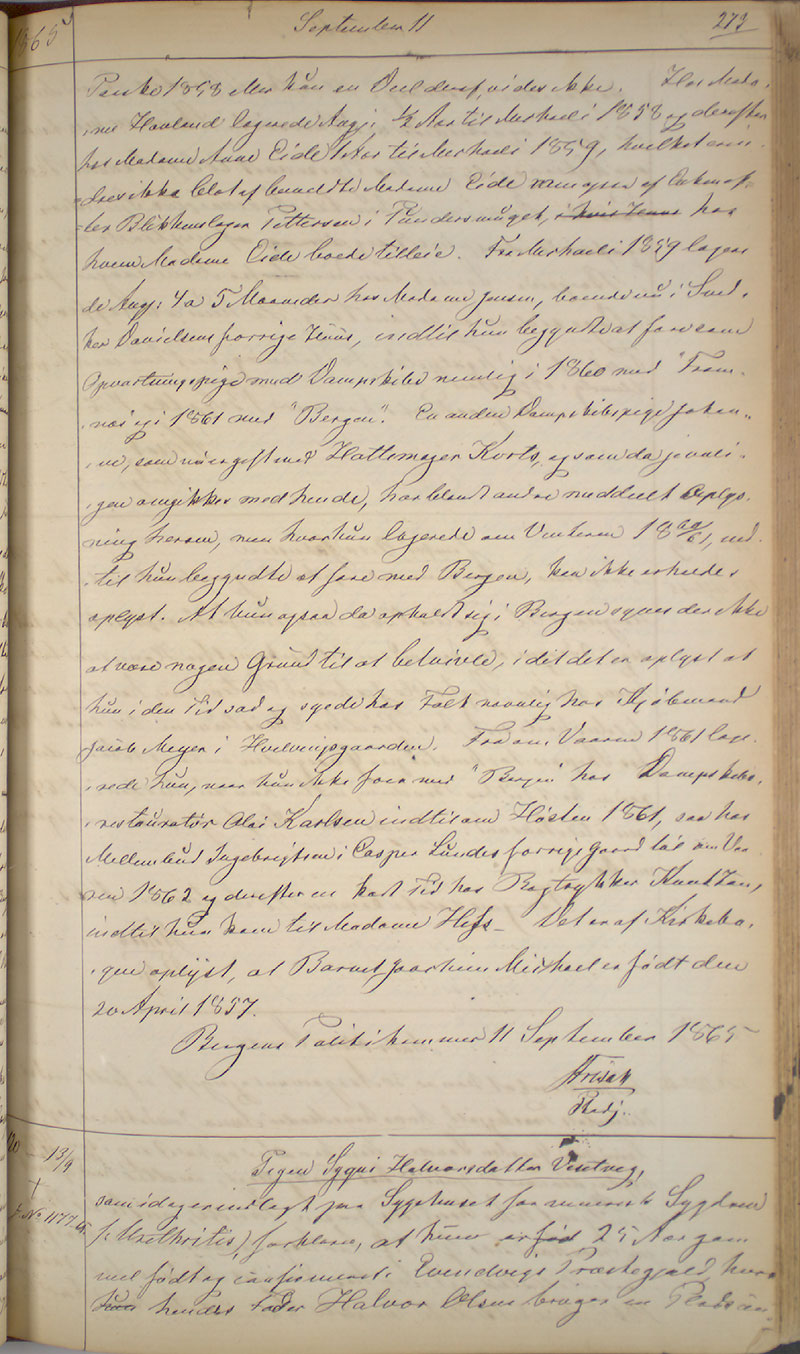 1865
September 11
273
Paaske 1858. Mer kan en Deel deraf, vides ikke. Hos Mada,
me Hovland logerede Angj: ½ Aar til Michaeli 1858 og derefter
hos Madame Anne Eide 1 Aar til Michaeli 1859, hvilket erin,
dres ikke blot af bemeldte Madame Eide men ogsaa af
Blikkenslager Pettersen i Pundersmuget, i hvis Huus hos
hvem Madame Eide boede tilleie. Fra Michaeli 1859 logere,
de Angj: 4 a 5 Maaneder hos Madame Jensen, boende nu i Sned,
ker Danielsens forrige Huus, indtil hun begyndte at fare som
Opvartningspige med Dampskibe nemlig i 1860 med "Fram,
næs og i 1861 med "Bergen". En anden Dampskibspige Johan,
ne, som nu er gift med Hattemager Korts, og som da jevnli,
gen omgikkes med hende, har blandt andre meddeelt Oplys,
ning herom, men hvor hun logerede om Vinteren 1860/61, ind,
til hun begyndte at fare med Bergen, kan ikke erholdes
oplyst. At hun ogsaa da opholdt sig i Bergen synes der ikke
at være nogen Grund til at betvivle, idet det er oplyst at
hun i den Tid sad og syede hos Folk navnlig hos Kjøbmand
Jacob Meyer i Hvelvingsgaarden. Fra om Vaaren 1861 loge,
rede hun, naar hun ikke foer med "Bergen" hos Dampskibs,
restauratør Olai Karlsen indtil om Høsten 1861, saa hos
Mellembud Ingebrigtsen i Casper Lundes forrige Gaard til om Vaa
ren 1862 og derefter en kort Tid hos Bogtrykker Knudtzon,
indtil hun kom til Madame Høfs. Det er af Kirkebo,
gen oplyst, at Barnet Joachim Michael er født den
20 April 1857.
Bergens Politikammer 11 September 1865
Frisak
Pkdj.
13/9
J. No 1177
Pigen Sygni Halvorsdatter Visetveg,
som idag er indlagt paa Sygehuset for venerisk Sygdom
(: Urethritis) forklarer, at hun er fød 25 Aar gam
mel født og confirmeret i Evindvigs Præstegjeld hvor
hun hendes Fader Halvor Olsen bruger en Plads